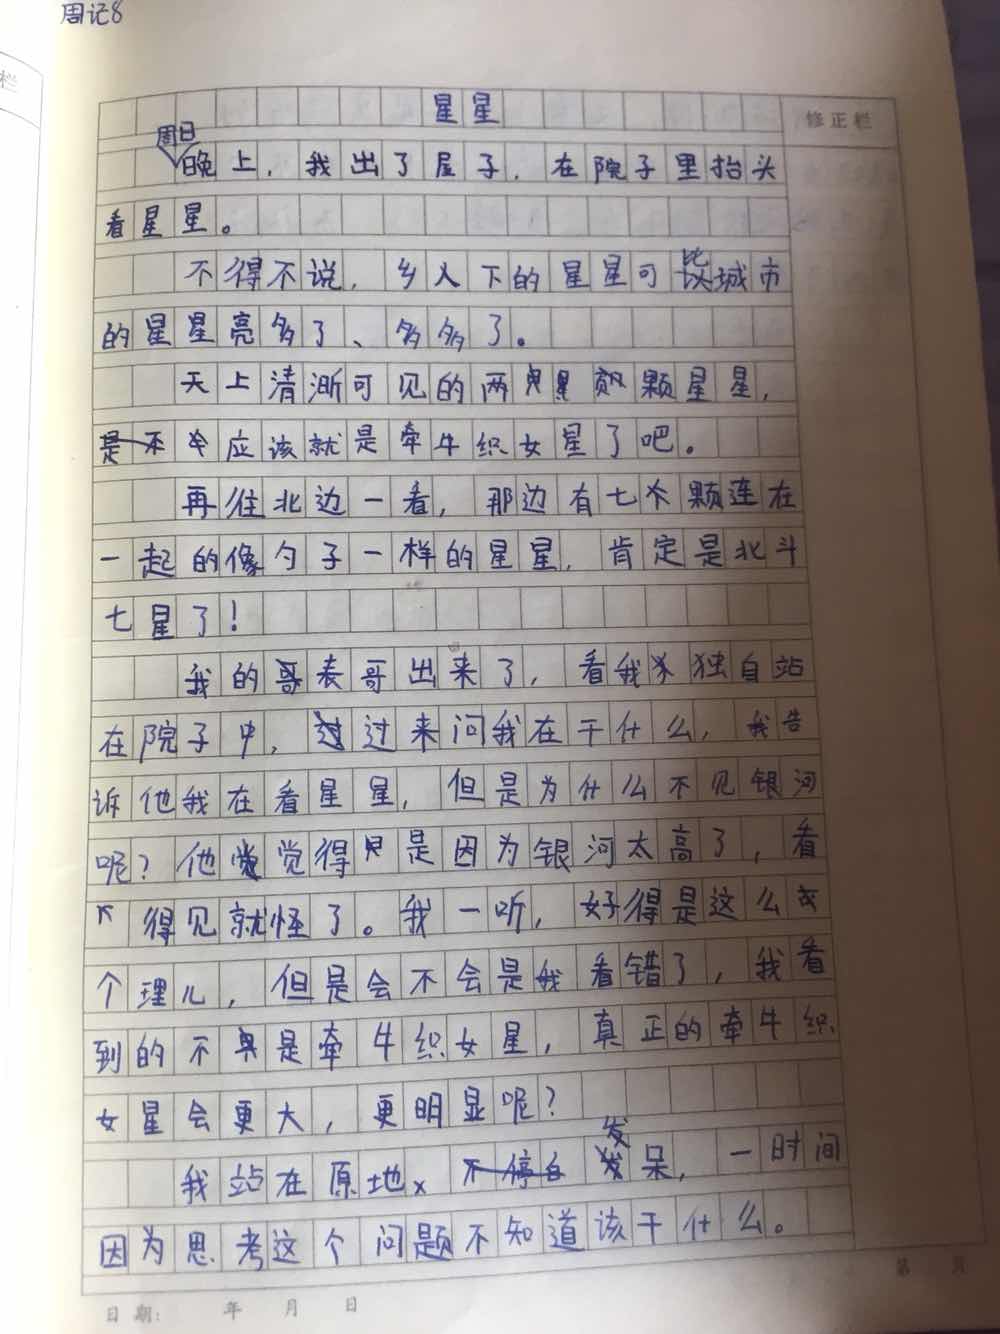 周记8
星星
修正栏
周日
晚上，我出了屋子，在院子里抬头
看星星。
不得不说，乡人下的星星可比城市
的星星亮多了、多多了。
天上清淅可见的两颗星星，
应该就是牵牛织女星了吧。
再往北边一看，那边有七颗连在
一起的像勺子一样的星星，肯定是北斗
七星了！
我的表哥出来了，看我独自站
在院子中，过来问我在干什么，我告
诉他我在看星星，但是为什么不见银河
呢？他觉得是因为银河太高了，看
得见就怪了。我一听，好得是这么
个理儿，但是会不会是我看错了，我看
到的不是牵牛织女星，真正的牵牛织
女星会更大，更明显呢？
我站在原地、发呆，一时间
因为思考这个问题不知道该干什么。
第 页
日期： 年 月 日
栏